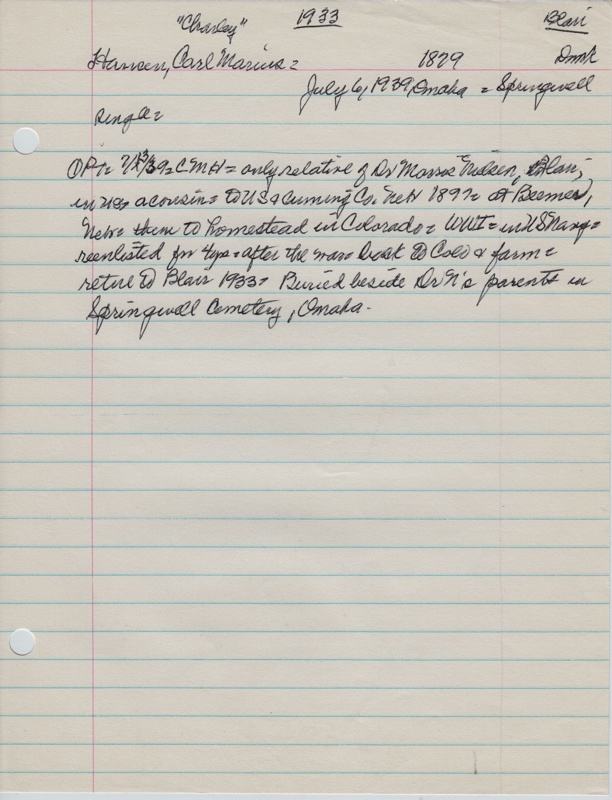 "Charley" 1933 Blair
Hansen, Carl Marius = 1879 Dmk
July 6, 1939, Omaha = Springwell
Single =
OPT = 7/13/39 = CMH = only relative of Dr Morris Nielsen, Blair,
in US a cousin = to US & Cuming Co. Neb 1897 = at Beemer,
Neb = then to homestead in Colorado = WWI = in US Navy =
reenlisted for 4 yrs = after the war back to Colo & farm =
retire to Blair 1933 = Buried beside Dr N's parents in
Springwell Cemetery, Omaha.